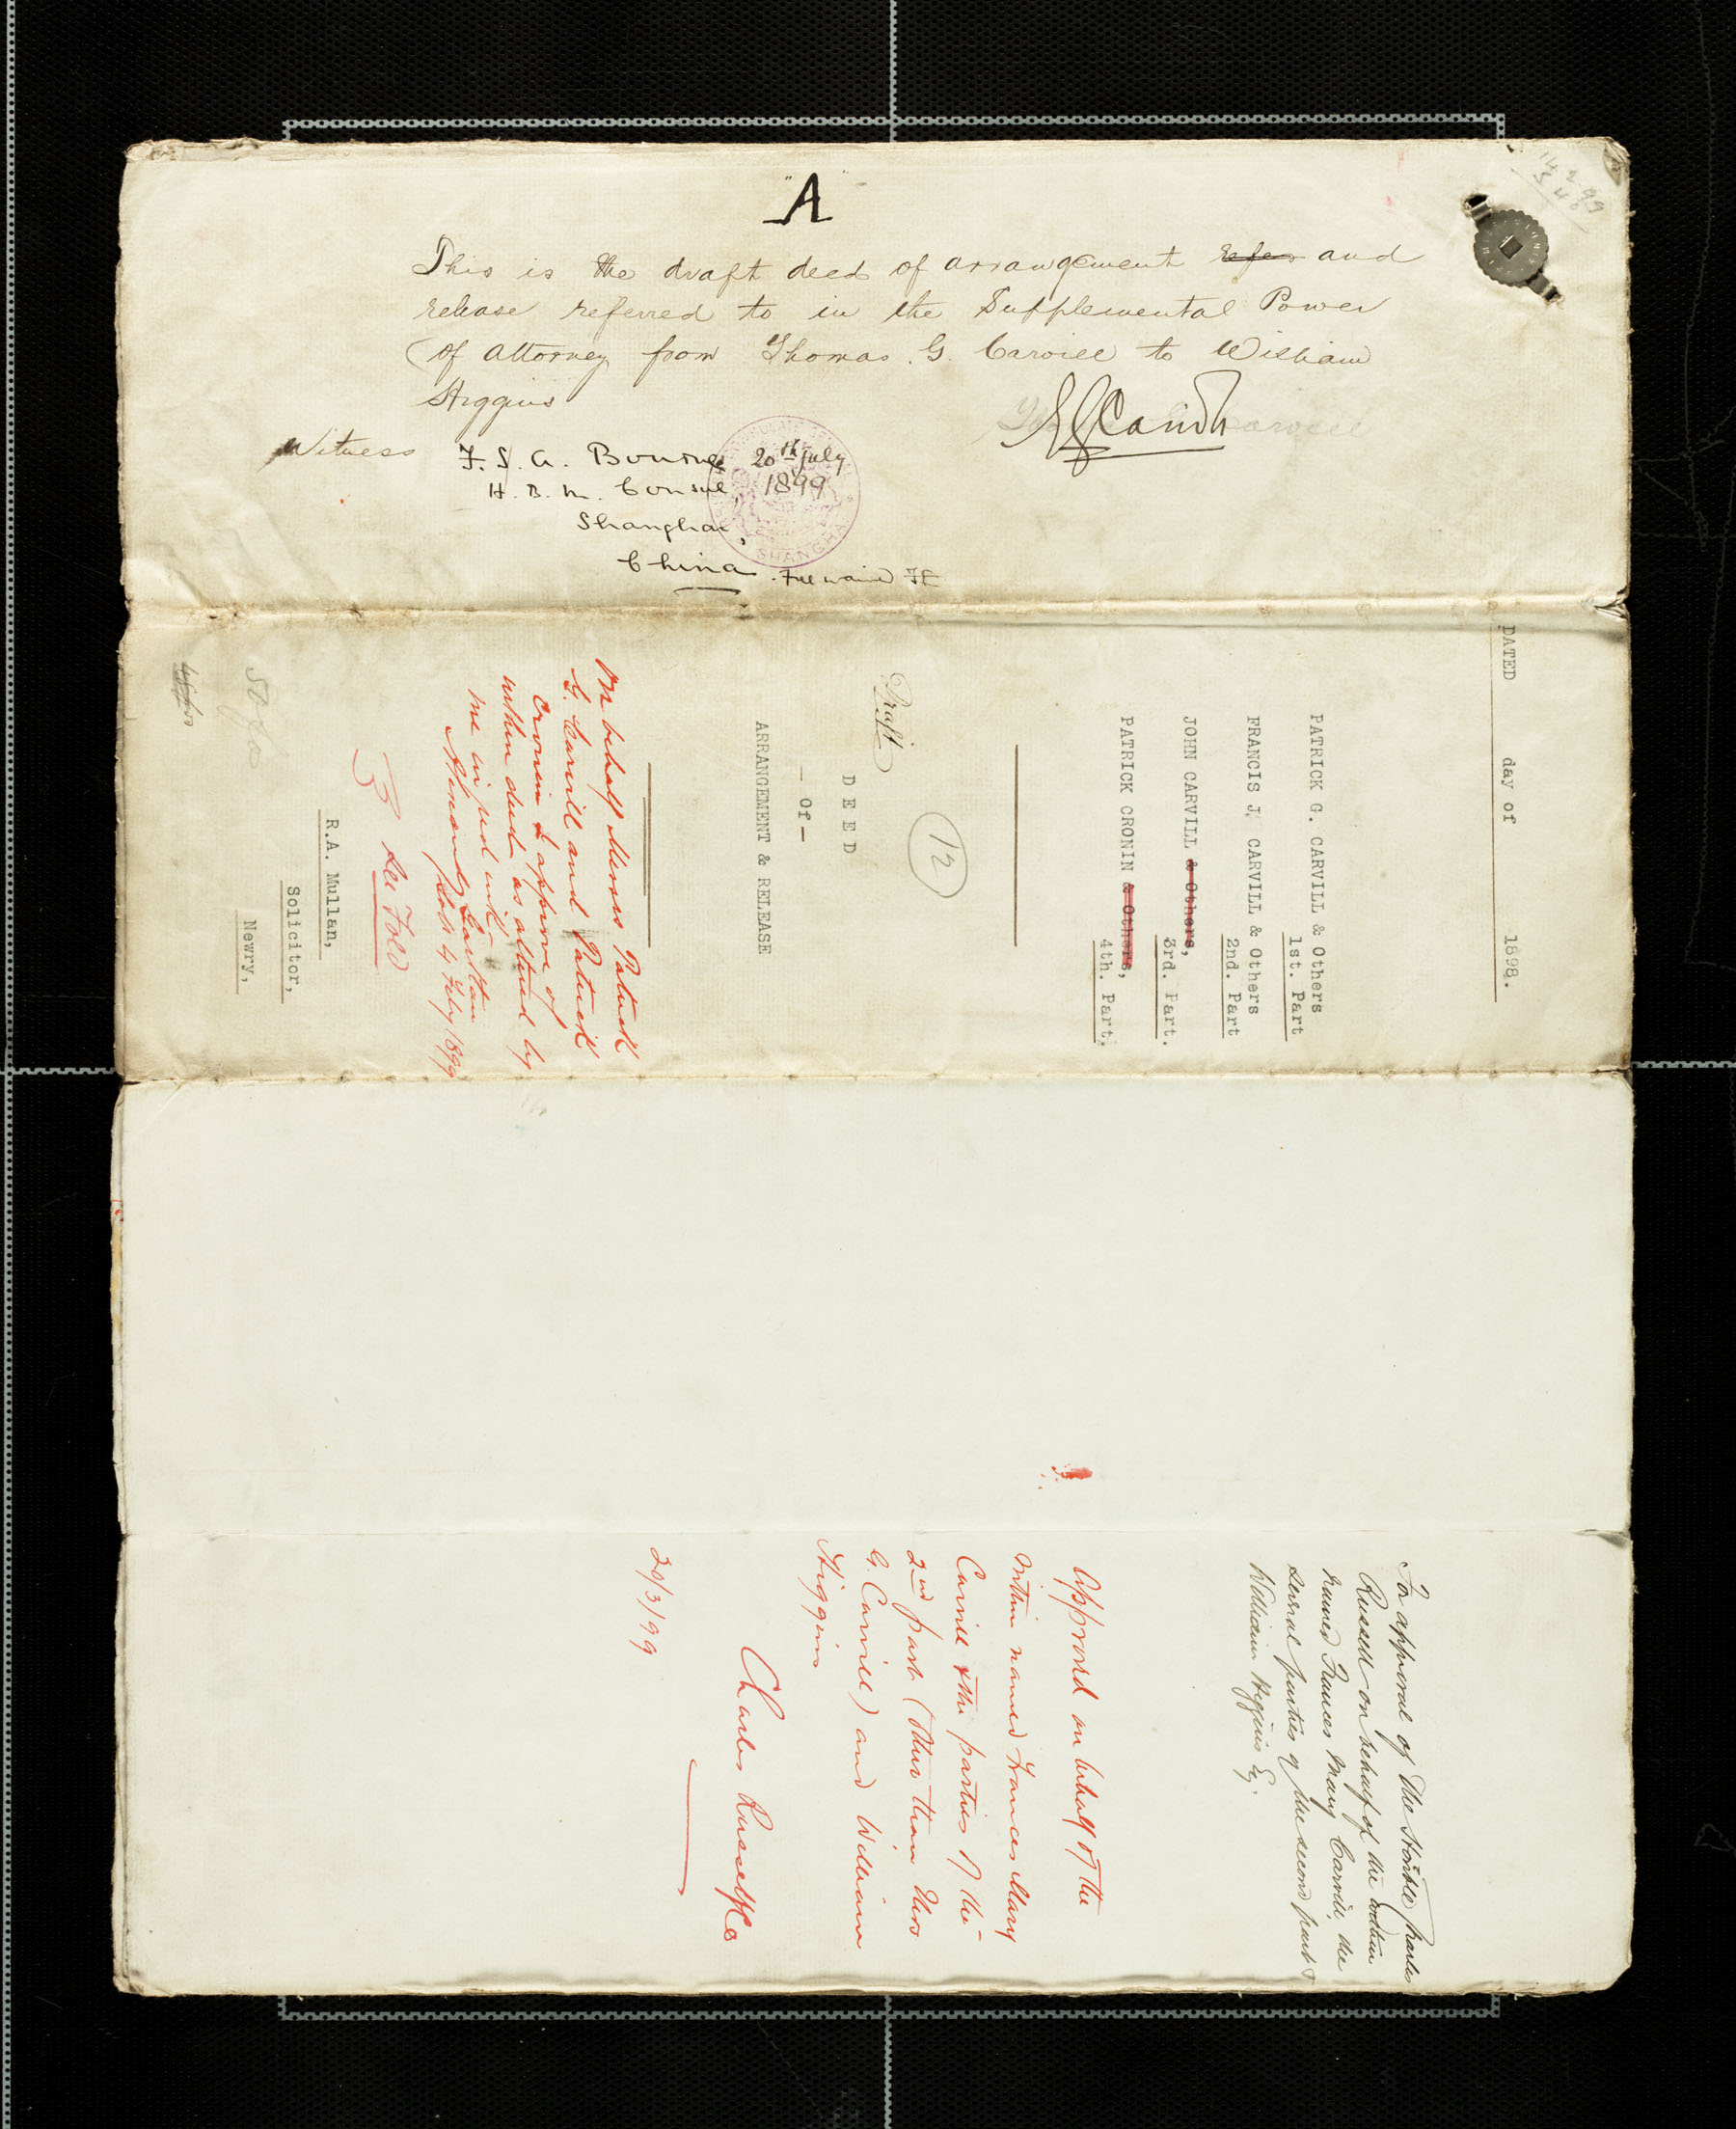 "A"
This is the draft deed of arrangement refer and
release referred to in the Supplemental Power
of attorney from Thomas G. Carvill to William
Higgins
Witness F. S. A. Bourne 20th July
H. B. M. Consul, 1899
Shanghai,
China
SHANGHAI
DATED day of 1898.
PATRICK G. CARVILL & Others
1st. Part
FRANCIS J. CARVILL & Others
2nd. Part
JOHN CARVILL & Others,
3rd. Part.
PATRICK CRONIN & Others,
4th. Part.
12
Draft
DEED
- Of -
ARRANGEMENT & RELEASE
On behalf Messrs Patrick
G. Carvill and Patrick
Cronin I approve of
within deed as altered by
me in red ink
4 July 1899
See Fold
R.A. Mullan,
Solicitor,
Newry,
50 fos
For approval of
Russell on behalf of the within
named Frances Mary Carvill, the
several parties of the second part &
William Higgins Esq.
Approved on behalf of the
within named Frances Mary
Carvill & the parties of the
2nd part (other than
G. Carvill) and William
Higgins
Charles Russell & Co
20/3/99